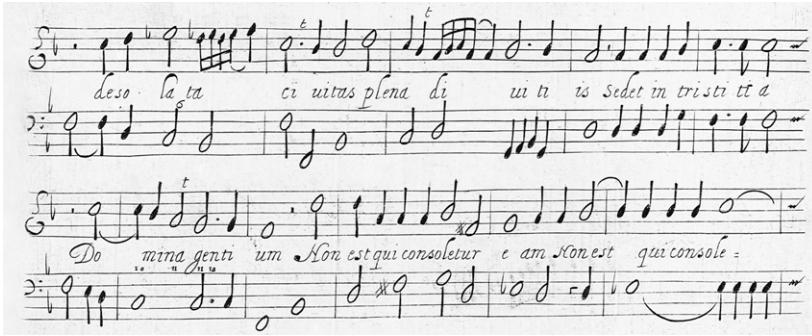 t t
deso la ta ci uitas plena di ui ti is Sedet in tristi tia
6
t
Do mina genti um Non est qui consoletur e am Non est qui console =